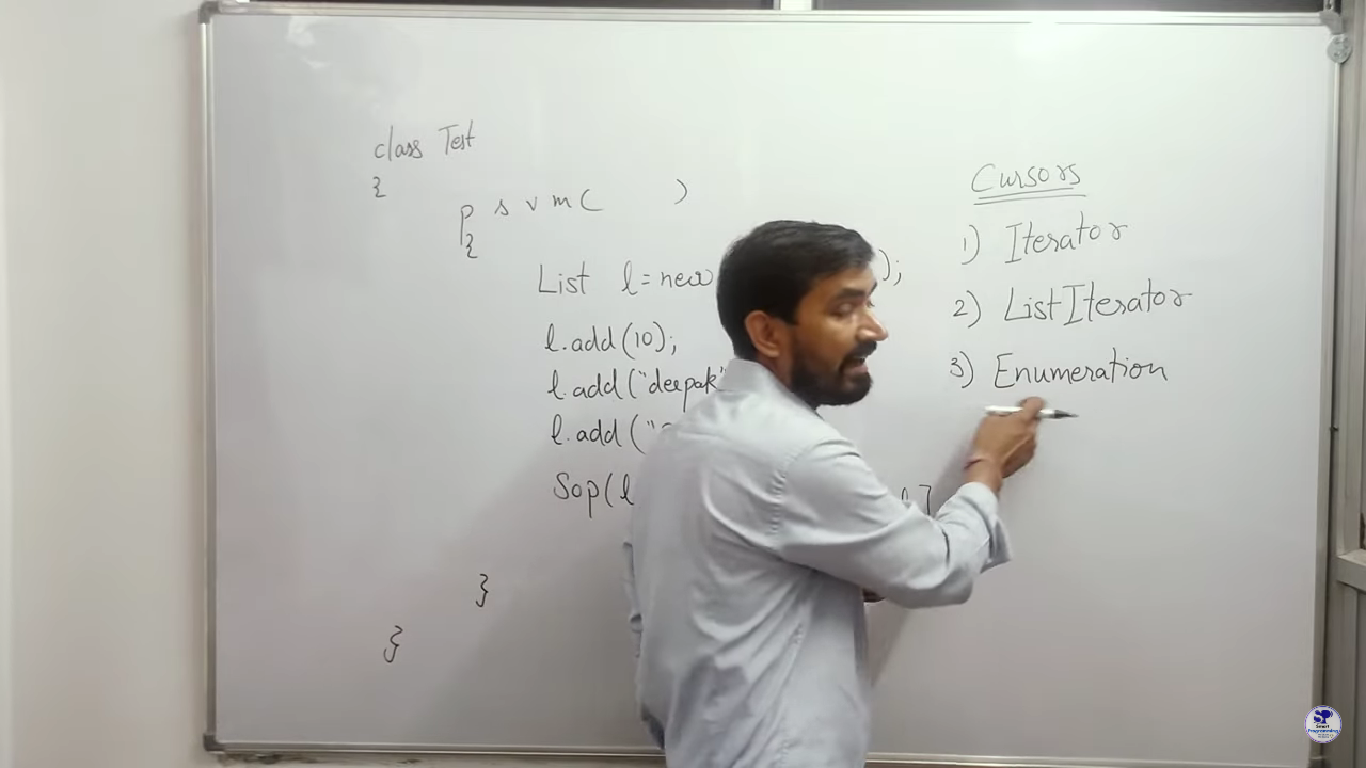 class Test
{
p s v m (        )
{
List l = new );
l.add(10);
l.add("deepak"
l.add("
Sop(l
}
}
Cursors
1) Iterator
2) ListIterator
3) Enumeration
SP
Smart
Programming